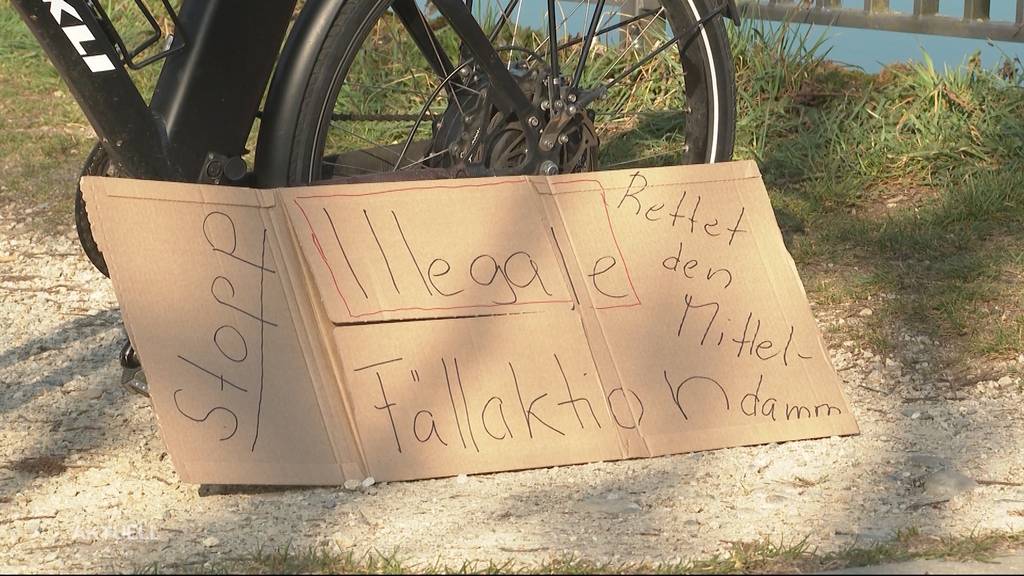 KLI
Stopp
Illegale
Fällaktion
Rettet
den
Mittel-
damm
AKTUELL